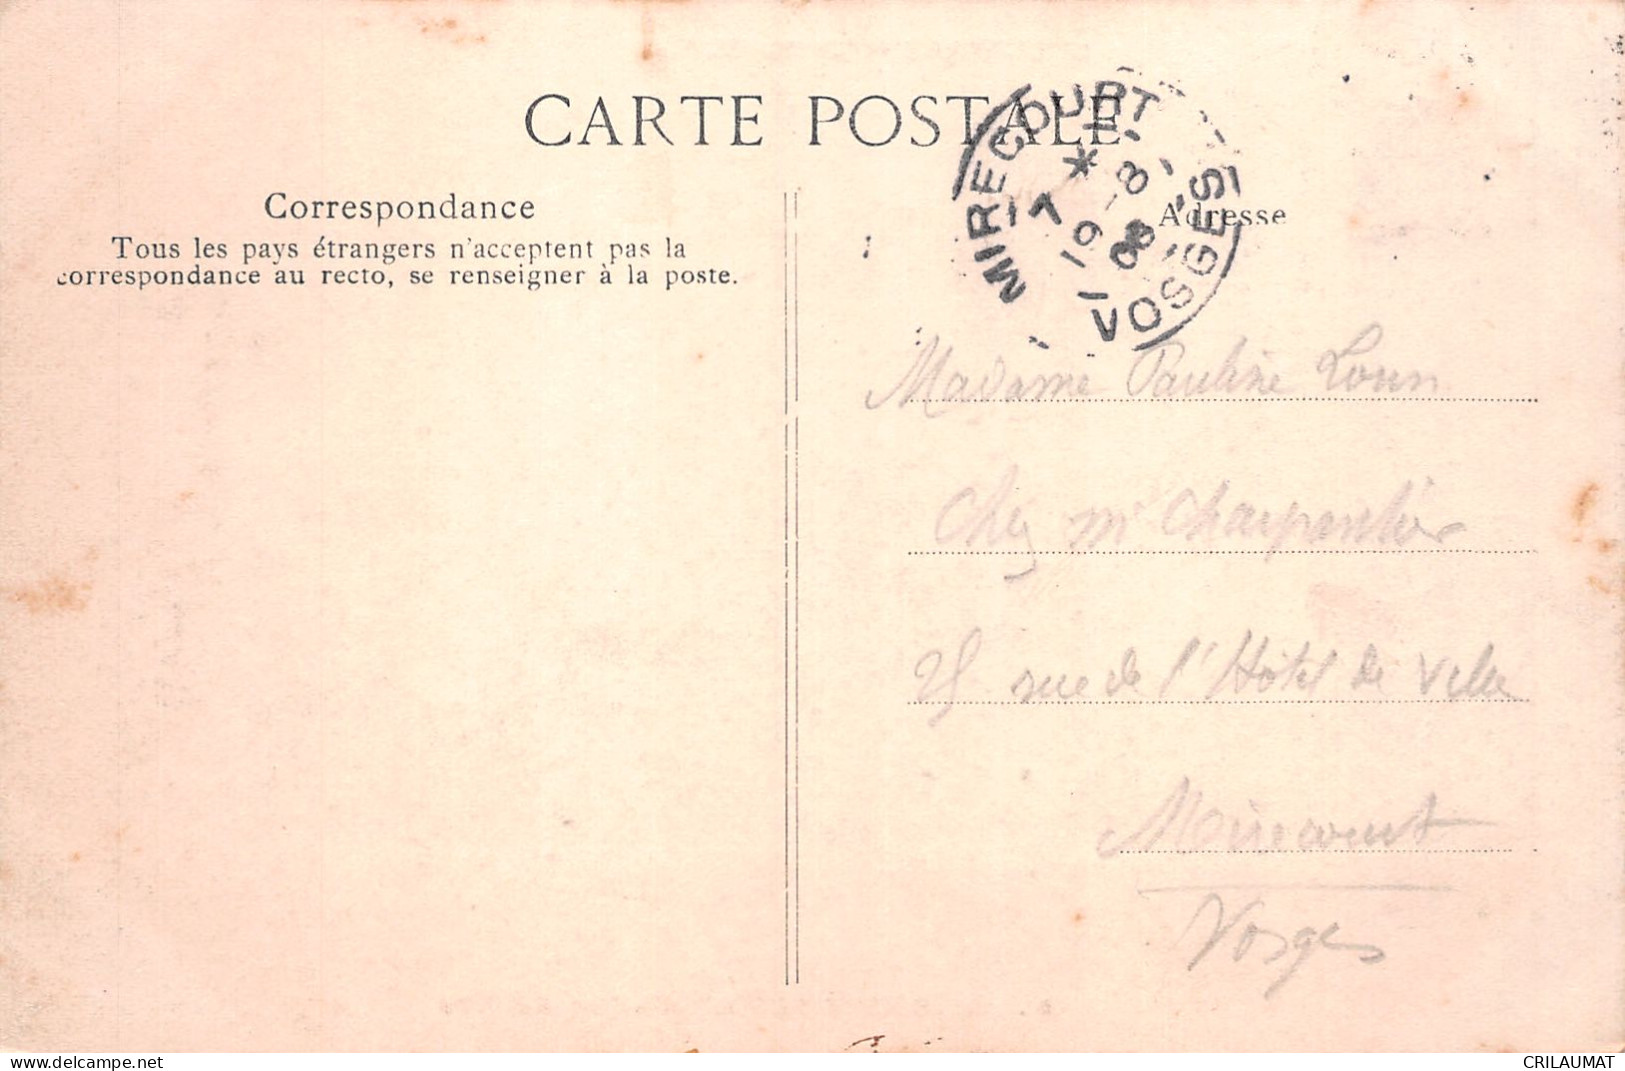 CARTE POSTALE
Correspondance
Tous les pays étrangers n'acceptent pas la
correspondance au recto, se renseigner à la poste.
MIRECOURT
7 * 19 -8 08
VOSGES
Adresse
Madame Pauline
Chez Mr Charpentier
25 rue de l'Hôtel de Ville
Mirecourt
Vosges
https://www.delcampe.net
CRILAUMAT